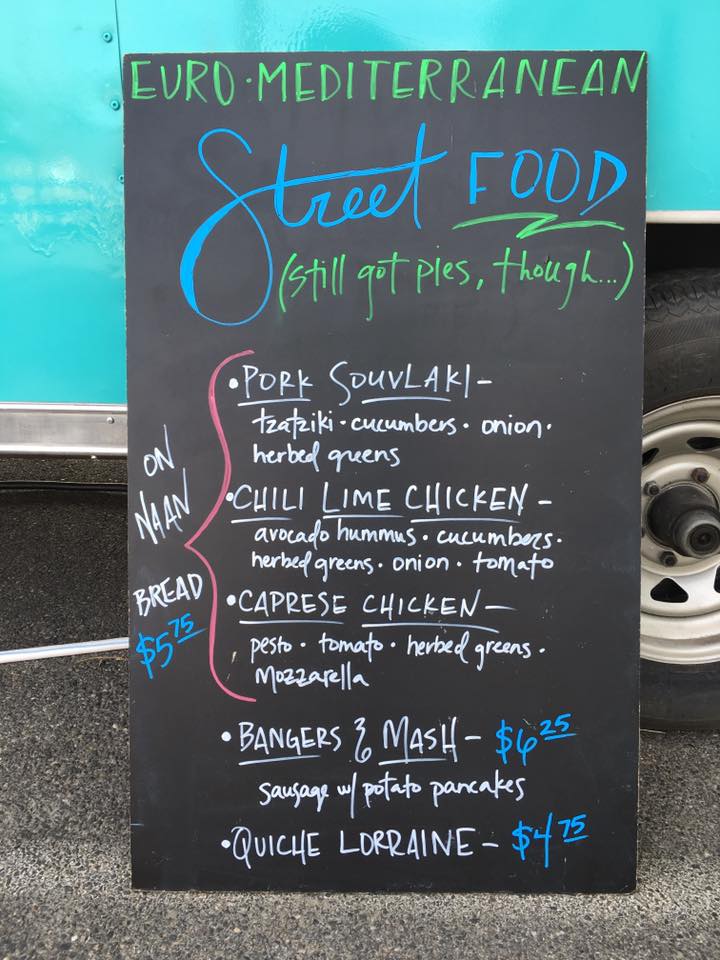 EURO·MEDITERRANEAN
Street FOOD
(still got pies, though...)
ON
NAAN
BREAD
$5 75
• PORK SOUVLAKI –
tzatziki · cucumbers · onion ·
herbed greens
• CHILI LIME CHICKEN –
avocado hummus · cucumbers ·
herbed greens · onion · tomato
• CAPRESE CHICKEN –
pesto · tomato · herbed greens ·
Mozzarella
• BANGERS & MASH – $6 25
sausage w/ potato pancakes
• QUICHE LORRAINE – $4 75